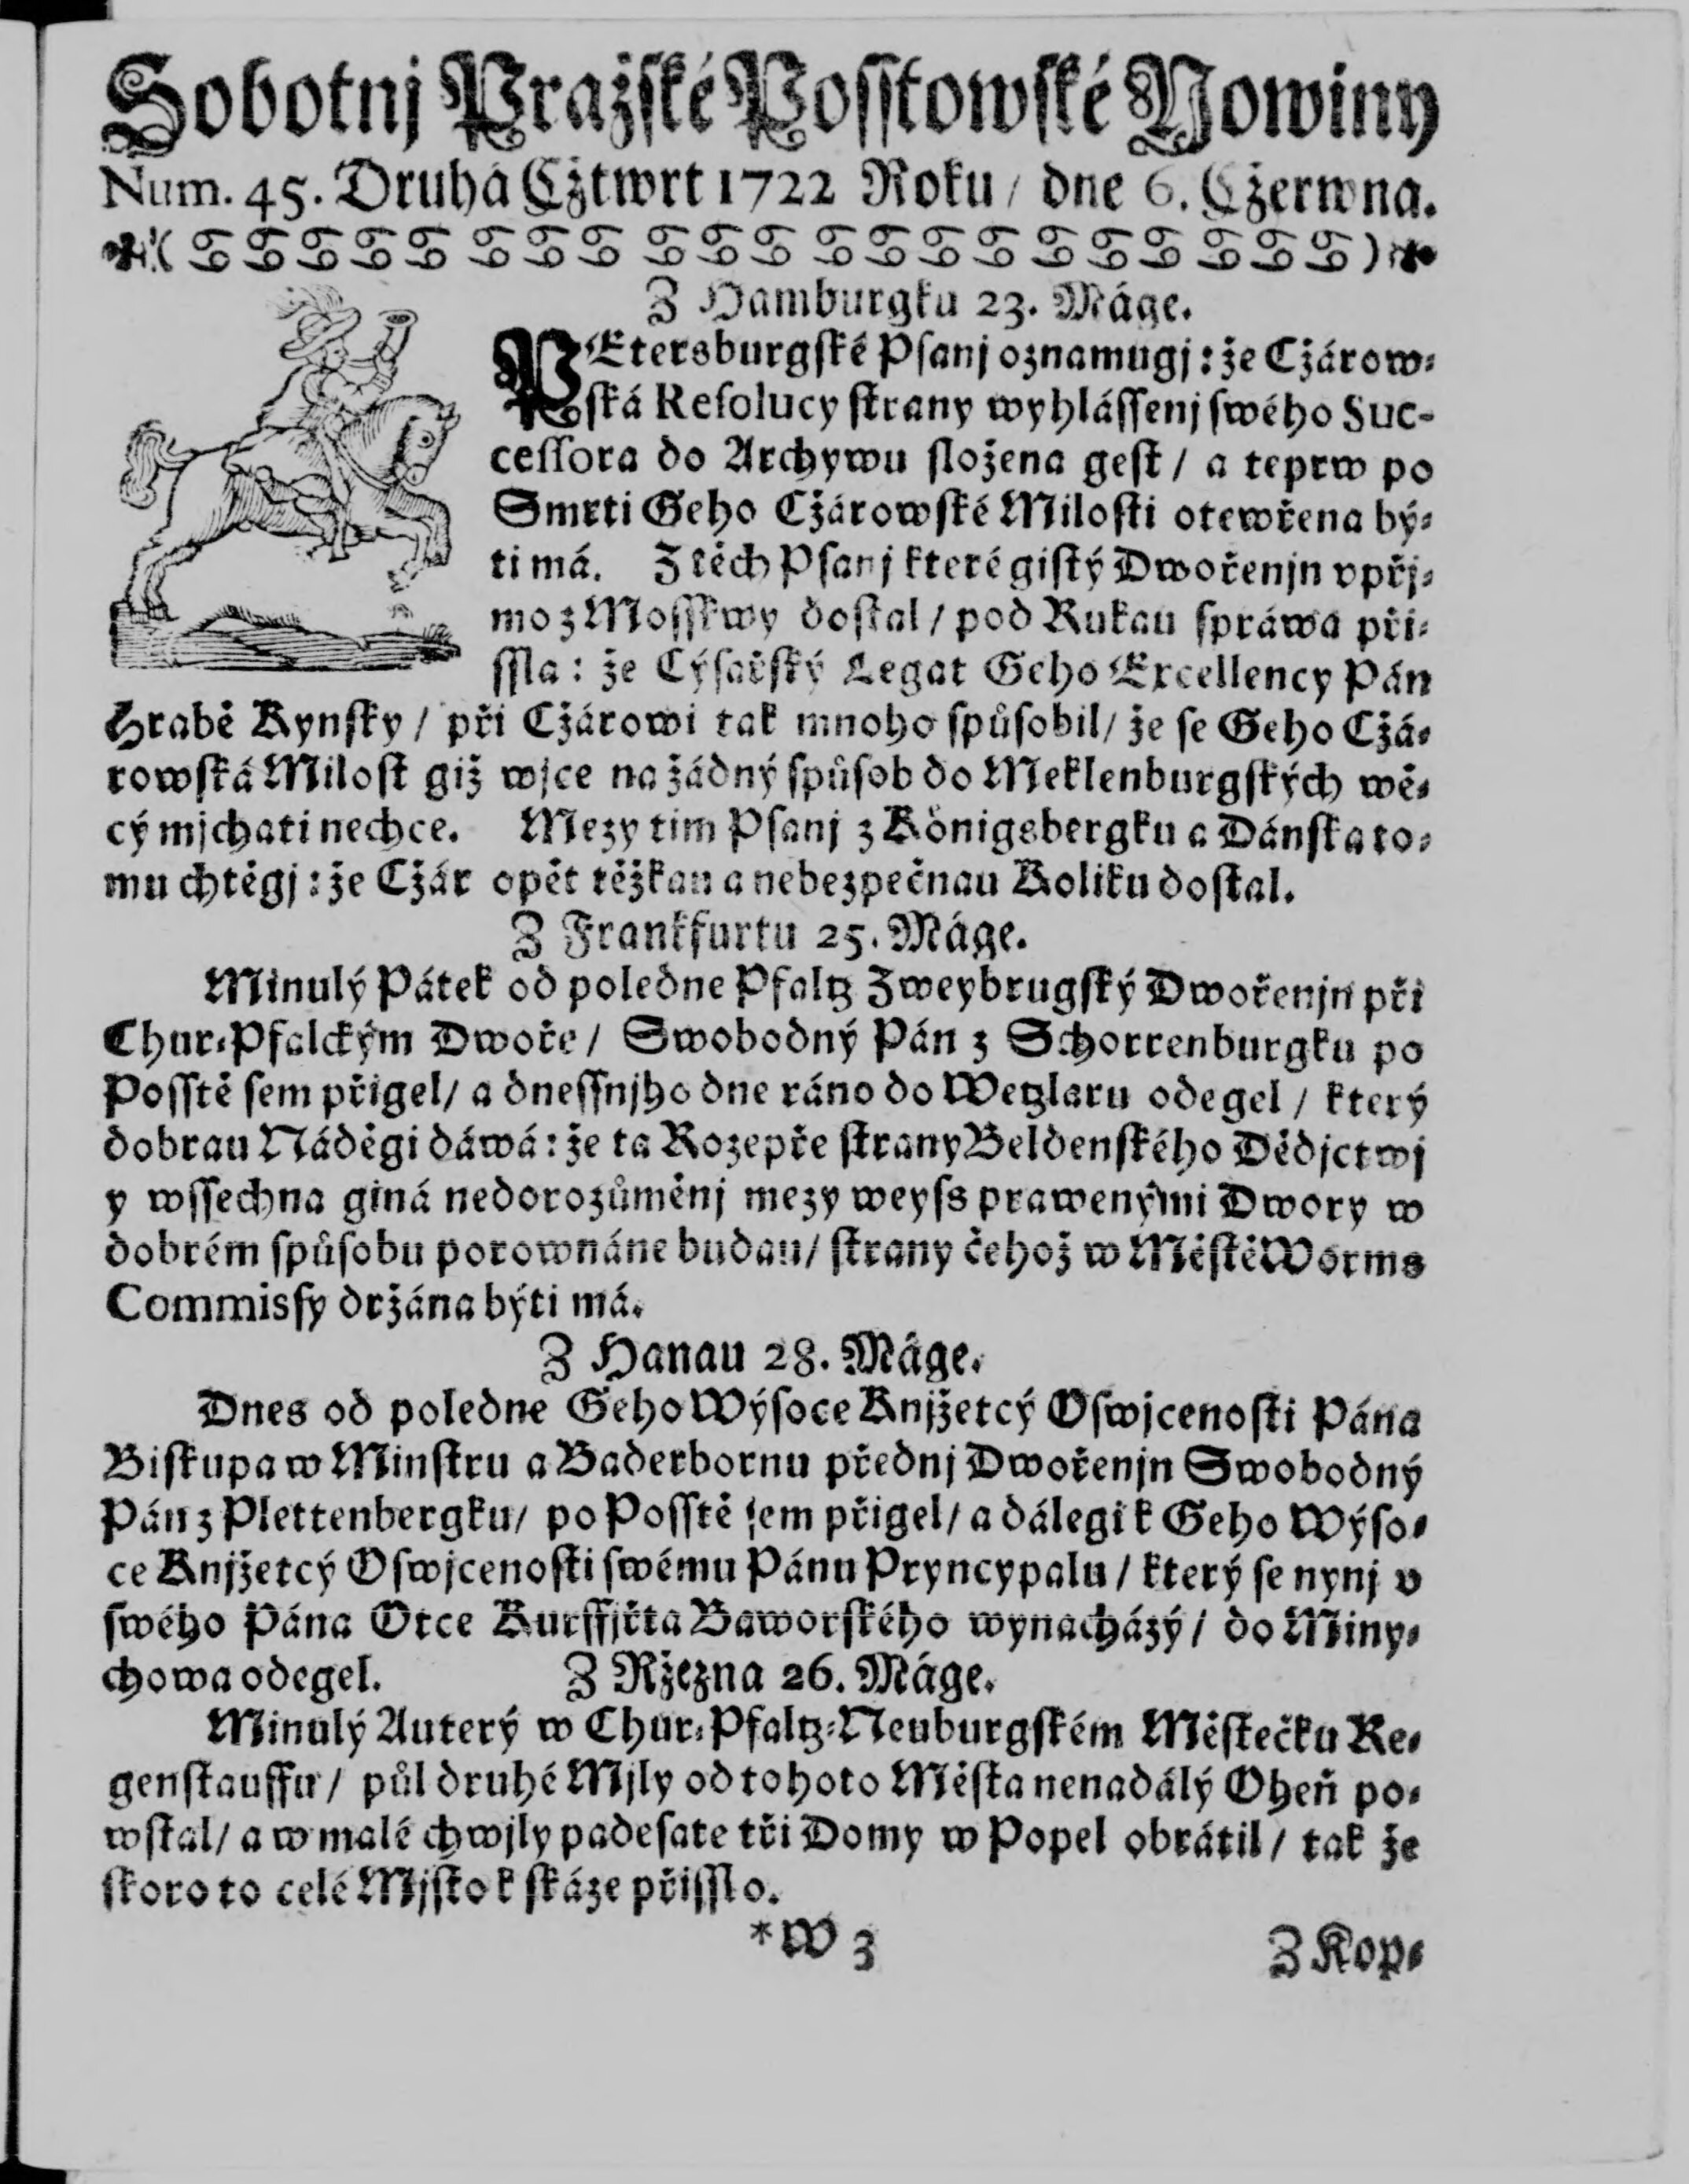 Sobotnj Pražské Posstowské Nowiny
Num. 45. Druhá Cžtwrt 1722 Roku / dne 6. Cžerwna.
Z Hamburgku 23. Máge.
PEtersburgské Psanj oznamugj : že Cžárow-
ská Resolucy strany wyhlássenj swého Suc-
cessora do Archywu složena gest / a teprw po
Smrti Geho Cžárowské Milosti otewřena bý-
ti má. Z těch Psanj které gistý Dwořenjn vpřj-
mo z Mosskwy dostal / pod Rukau spráwa při-
ssla : že Cýsařský Legat Geho Excellency Pán
Hrabě Kynsky / při Cžárowi tak mnoho spůsobil / že se Geho Cžá-
rowská Milost giž wjce na žádný spůsob do Meklenburgských wě-
cý mjchati nechce. Mezy tim Psanj z Königsbergku a Dánska to-
mu chtěgj : že Cžár opět těžkau a nebezpečnau Koliku dostal.
Z Frankfurtu 25. Máge.
Minulý Pátek od poledne Pfaltz Zweybrugský Dwořenjn při
Chur-Pfalckým Dwoře / Swobodný Pán z Schorrenburgku po
Posstě sem přigel / a dnessnjho dne ráno do Wetzlaru odegel / který
dobrau Náděgi dáwá : že ta Rozepře strany Beldenského Dědjctwj
y wssechna giná nedorozůměnj mezy weyss prawenými Dwory w
dobrém spůsobu porownáne budau / strany čehož w Městě Worms
Commissy držána býti má.
Z Hanau 28. Máge.
Dnes od poledne Geho Wýsoce Knjžetcý Oswjcenosti Pána
Biskupa w Minstru a Baderbornu přednj Dwořenjn Swobodný
Pán z Plettenbergku / po Posstě sem přigel / a dálegi k Geho Wýso-
ce Knjžetcý Oswjcenosti swému Pánu Pryncypalu / který se nynj v
swého Pána Otce Kurssiřta Baworského wynacházý / do Miny-
chowa odegel. Z Ržezna 26. Máge.
Minulý Auterý w Chur-Pfaltz-Neuburgském Městečku Re-
genstauffu / půl druhé Mjly od tohoto Města nenadálý Oheň po-
wstal / a w malé chwjly padesate tři Domy w Popel obrátil / tak že
skoro to celé Mjsto k skáze přisslo.
*W 3 Z Kop-